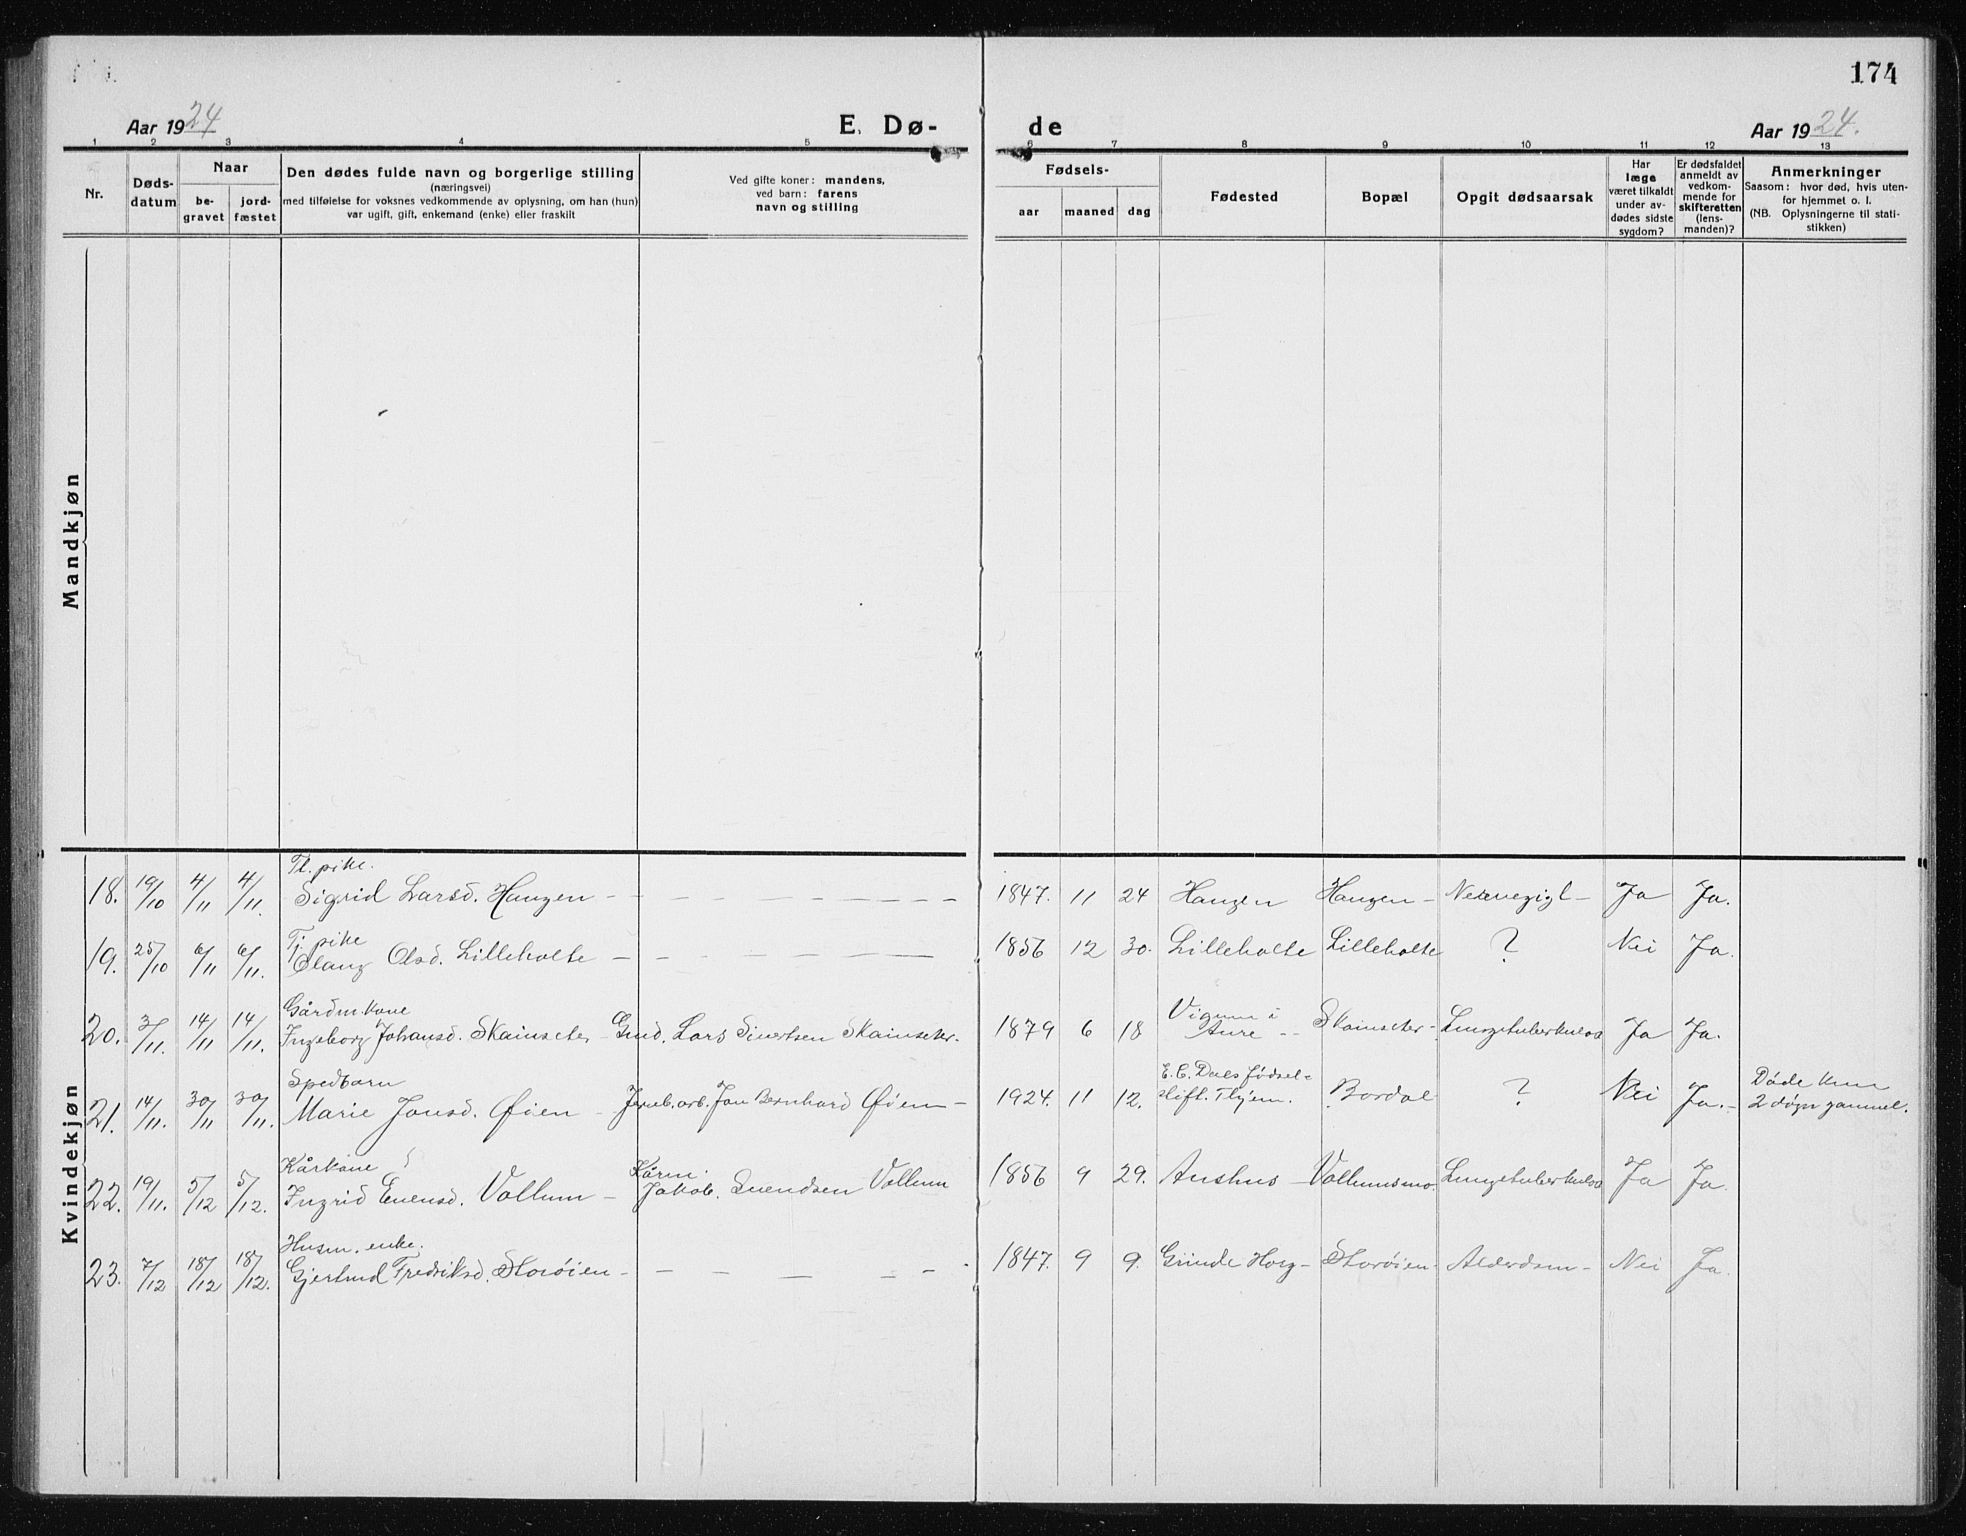 174
Aar 1924
E. Dø-
de
Aar 1924.
1 2 3 4 5 6 7 8 9 10 11 12 13
Nr.
Døds-
datum
Naar
be-
gravet
jord-
fæstet
Den dødes fulde navn og borgerlige stilling
(næringsvei)
med tilføielse for voksnes vedkommende av oplysning, om han (hun)
var ugift, gift, enkemand (enke) eller fraskilt
Ved gifte koner: mandens,
ved barn: farens
navn og stilling
Fødsels-
aar maaned dag
Fødested
Bopæl
Opgit dødsaarsak
Har
læge
været tilkaldt
under av-
dødes sidste
sygdom?
Er dødsfaldet
anmeldt av
vedkom-
mende for
skifteretten
(lens-
manden)?
Anmerkninger
Saasom: hvor død, hvis uten-
for hjemmet o. l.
(NB. Oplysningerne til stati-
stikken)
Mandkjøn
Kvindekjøn
pike.
18. 19/10 4/11 4/11. Sigrid Larsd. Haugen - - - - - - - - - 1847. 11 24 Haugen Haugen - - Ja Ja.
Tj. pike
19. 25/10 6/11 6/11. Olsd. Lilleholte - - - - - - 1856 12 30. Lilleholte Lilleholte ? Nei Ja.
Gårdmkone
20. 3/11. 14/11 14/11. Ingeborg Johansd. Skainseter - Gmd. Lars Sivertsen Skainseter. 1879 6 18 Vigum i
Aure - - Skainseter - Lungetuberkulos Ja Ja.
Spedbarn
21. 14/11. 30/11 30/11. Marie Jonsd. Øien - Jernb.arb. Jon Bernhard Øien - 1924. 11 12. E. C. Dals fødsel-
stift. Tr.hjem. Bordal ? Nei Ja. - Døde kun
2 døgn gammel.
Kårkone
22. 19/11. 5/12 5/12. Ingrid Evensd. Vollum - Kårm.
Jakob Svendsen Vollum 1856 9 29. Aushus - Vollumsmo. Lungetuberkulos Ja Ja.
Husm. enke.
23. 7/12 18/12 18/12. Gjertrud Fredriksd. Storøien - - - - - - 1847. 9 9. Horg - Storøien - Alderdom - Nei Ja.